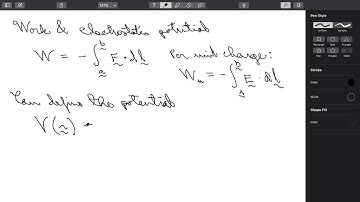 Work & electrostatic potential
W = -∫ₐᵇ E · dl
Per unit charge:
Wᵤ = -∫ₐᵇ E · dl
Can define the potential
V(r)
Pen Style
Stroke
Color
Width
Shape Fill
Color